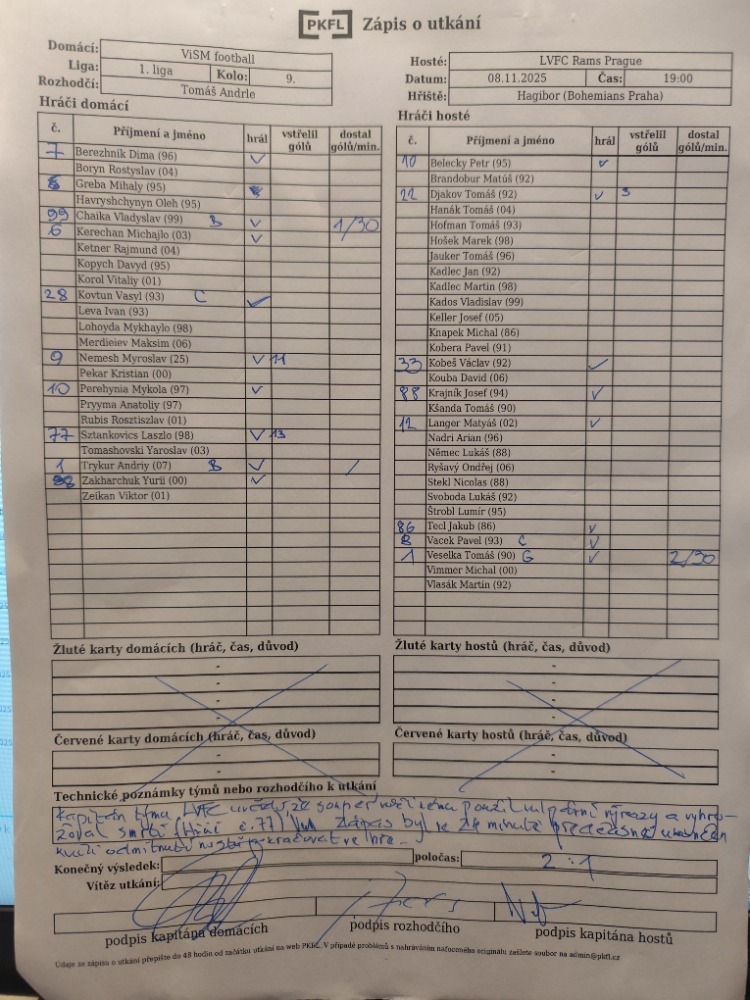 PKFL Zápis o utkání
Domácí: ViSM football
Liga: 1. liga Kolo: 9.
Rozhodčí: Tomáš Andrle
Hosté: LVFC Rams Prague
Datum: 08.11.2025 Čas: 19:00
Hřiště: Hagibor (Bohemians Praha)
Hráči domácí
č. Příjmení a jméno hrál vstřelil gólů dostal gólů/min.
7 Berezhnik Dima (96) ✓
Boryn Rostyslav (04)
Greba Mihaly (95)
Havryshchynyn Oleh (95)
99 Chaika Vladyslav (99) B ✓ 1/30
6 Kerechan Michajlo (03) ✓
Ketner Rajmund (04)
Kopych Davyd (95)
Korol Vitaliy (01)
28 Kovtun Vasyl (93) C ✓
Leva Ivan (93)
Lohoyda Mykhaylo (98)
Merdieiev Maksim (06)
9 Nemesh Myroslav (25) ✓ 11
Pekar Kristian (00)
10 Perehynia Mykola (97) ✓
Pryyma Anatoliy (97)
Rubis Rosztiszlav (01)
77 Sztankovics Laszlo (98) ✓ 13
Tomashovski Yaroslav (03)
1 Trykur Andriy (07) B ✓ /
Zakharchuk Yurii (00) ✓
Zeikan Viktor (01)
Hráči hosté
č. Příjmení a jméno hrál vstřelil gólů dostal gólů/min.
10 Belecky Petr (95) ✓
Brandobur Matúš (92)
Djakov Tomáš (92) ✓
Hanák Tomáš (04)
Hofman Tomáš (93)
Hošek Marek (98)
Jauker Tomáš (96)
Kadlec Jan (92)
Kadlec Martin (98)
Kados Vladislav (99)
Keller Josef (05)
Knapek Michal (86)
Kobera Pavel (91)
33 Kobeš Václav (92) ✓
Kouba David (06)
88 Krajník Josef (94) ✓
Kšanda Tomáš (90)
12 Langer Matyáš (02) ✓
Nadri Arian (96)
Němec Lukáš (88)
Ryšavý Ondřej (06)
Stekl Nicolas (88)
Svoboda Lukáš (92)
Štrobl Lumír (95)
86 Tecl Jakub (86) ✓
8 Vacek Pavel (93) C ✓
1 Veselka Tomáš (90) G ✓ 2/30
Vimmer Michal (00)
Vlasák Martin (92)
Žluté karty domácích (hráč, čas, důvod)
-
-
-
-
Červené karty domácích (hráč, čas, důvod)
-
-
Žluté karty hostů (hráč, čas, důvod)
-
-
-
-
Červené karty hostů (hráč, čas, důvod)
-
-
Technické poznámky týmů nebo rozhodčího k utkání
Kapitán týmu LVFC uvedl, že soupeř použil výrazy a vyhro-
žoval smrtí (Hráč č. 77) zápas byl ve minutě předčasně ukončen
kvůli odmítnutí pokračovat ve hře.
Konečný výsledek: poločas: 2:1
Vítěz utkání:
podpis kapitána domácích podpis rozhodčího podpis kapitána hostů
Údaje ze zápisu o utkání přepište do 48 hodin od začátku utkání na web PKFL. V případě problémů s nahráváním nafoceného originálu zašlete soubor na admin@pkfl.cz